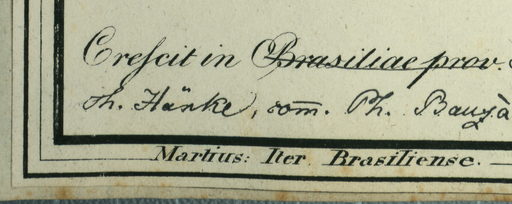 Creſcit in Brasiliae prov.
Th. Hänke, com̄. Ph. Bauzà
Martius: Iter Brasiliense.